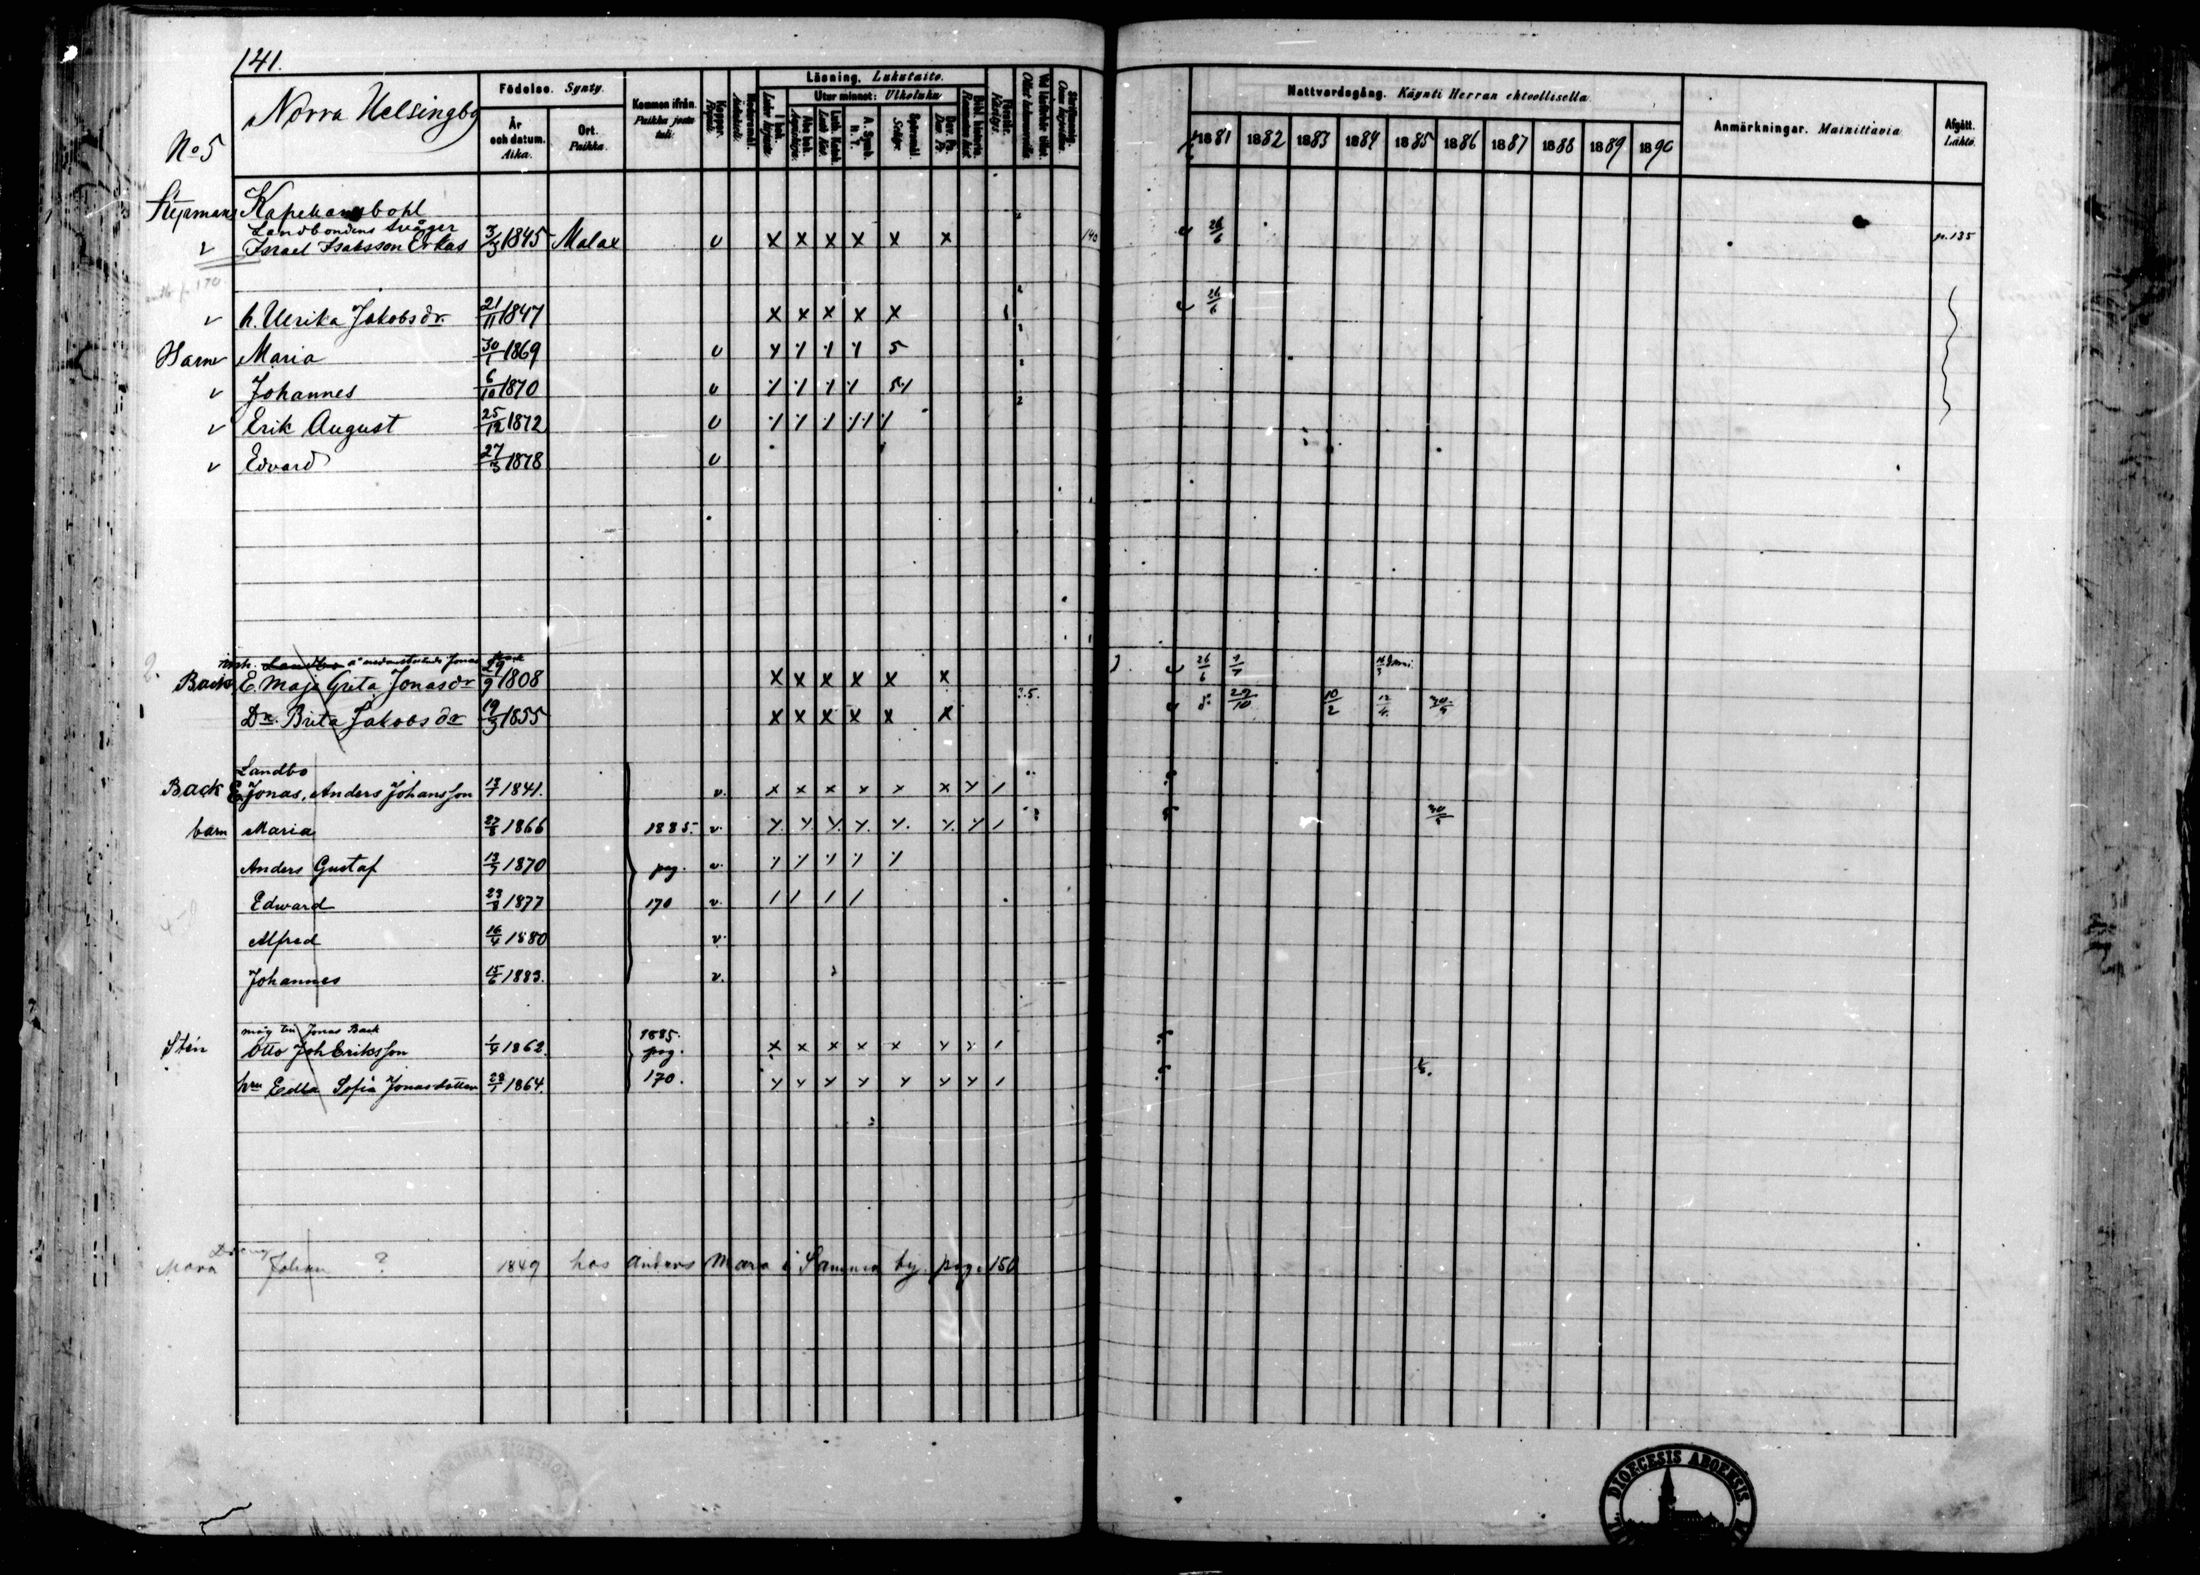 141.
Norra Helsingby
No 5
Födelse. Synty.
År och datum. Aika.
Ort. Paikka.
Kommen ifrån. Paikka josta tuli.
Koppor.
Läsning. Lukutaito.
Utur minnet: Ulkoluku
I bok.
Abc bok.
Luth. Katek.
A. Symb.
Spörsmål.
Dav. Ps.
Bibl. historia.
Förstår. Käsitys.
Nattvardsgång. Käynti Herran ehtoollisella.
1881 1882 1883 1884 1885 1886 1887 1888 1889 1890
Anmärkningar. Mainittavia
Afgått. Lähtö.
Kapellansbohl
Landbondens svåger
v Israel Isaksson Erkas 3/3 1845 Malax v x x x x x x 140 26/6 p. 135
p. 170
v h. Ulrika Jakobsdr. 21/11 1847 x x x x x 26/6
Barn Maria 30/1 1869 v 5
v Johannes 6/10 1870 v
v Erik August 25/12 1872 v
v Edvard 27/3 1878 v
2.
Jonas
Back E. Maja Greta Jonasdr 29/9 1808 x x x x x x 26/6
Dr. Brita Jakobsdr 19/3 1855 x x x x x x 29/10 10/2 12/4 30/9
Landbo
Back E Jonas, Anders Johansson 13/7 1841. v. x x x x x x
barn Maria 1866 1885. v.
Anders Gustaf 1870 pag. v.
Edward 1877 170 v.
Alfred 16/4 1880 v.
Johannes 15/6 1883. v.
måg till Jonas Back
Sten Otto Joh Eriksson 1/4 1862. 1885. pag. x x x x x
hru Edla Sofia Jonasdotter 1864. 170.
Dreng
Mara Johan ? 1849 hos Anders Mara i Samma by. pag. 150
DIOECESIS ABOENSIS